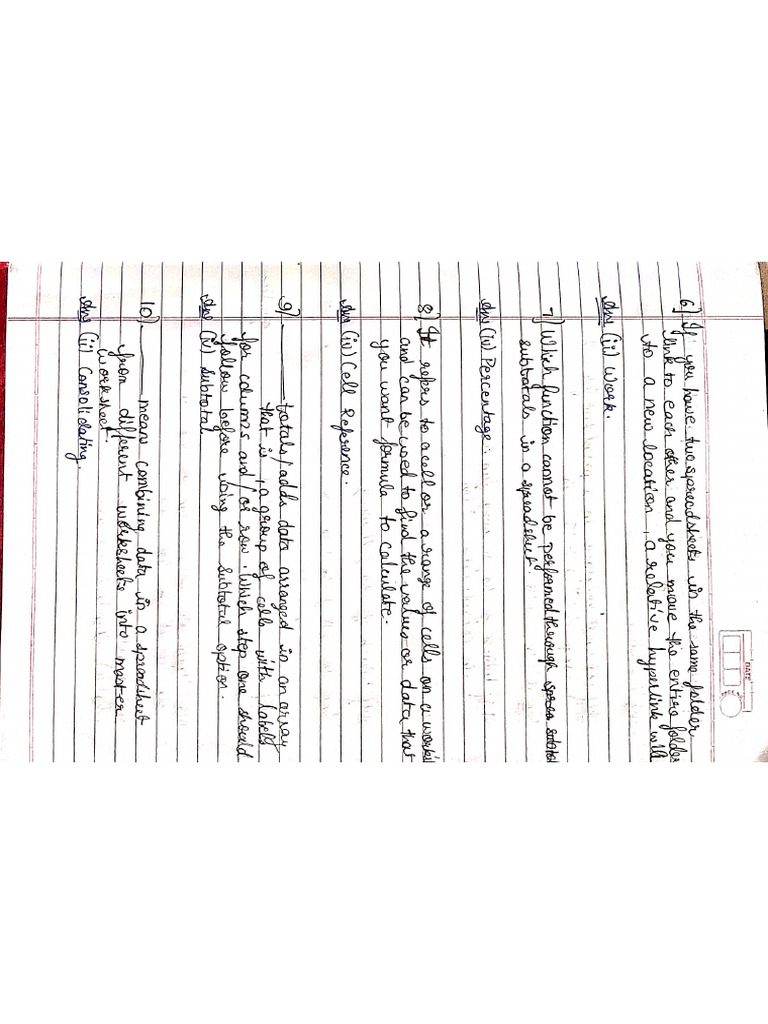 DATE
6) If you have two spreadsheets in the same folder
link to each other and you move the entire folder
to a new location, a relative hyperlink will
Ans (ii) Work.
7) Which function cannot be performed through subtotal
subtotals in a spreadsheet.
Ans (iv) Percentage.
8) It refers to a cell or a range of cells on a
and can be used to find the values or data that
you want formula to calculate.
Ans (iv) Cell Reference.
9) ——— totals/adds data arranged in an array
that is, a group of cells with labels
for columns and/or row. Which step one should
follow before using the subtotal option.
Ans (iv) Subtotal.
10) ——— means combining data in a spreadsheet
from different worksheets into master
worksheet.
Ans (ii) Consolidating.